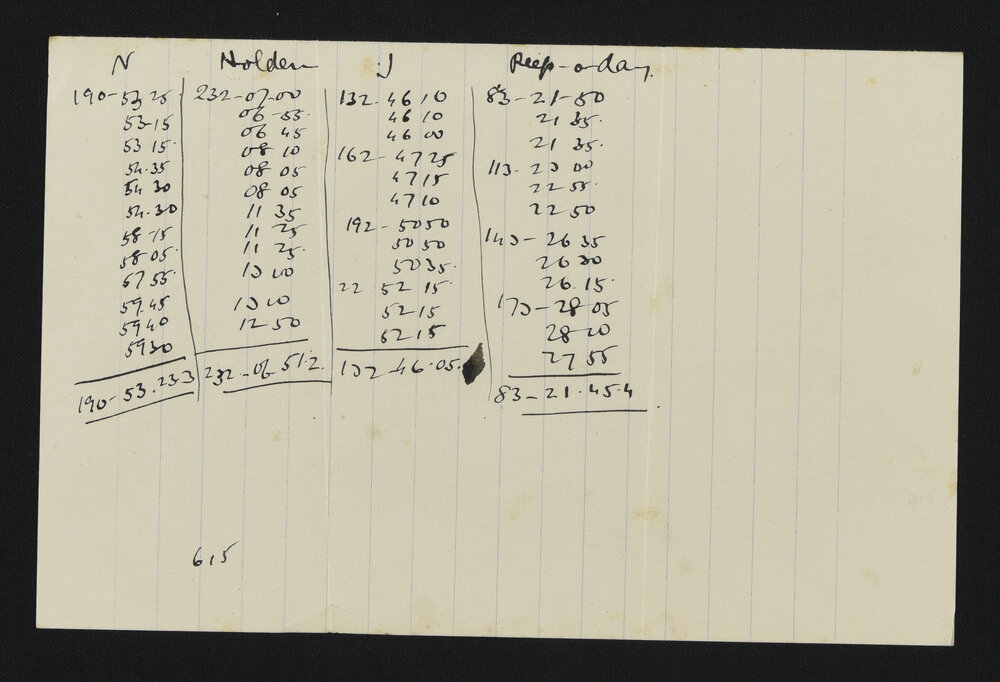 N Holden J Peep-o-day.
190-53 25 232-07-00 132-46 10 83-21-50
53-15 06-55. 46 10 21 35.
53 15. 06 45 46 00 21 35.
54.35 08 10 162-47 25 113-23 00
54 30 08 05 47 15 22 55.
54.30 08 05 47 10 22 50
58-15 11 35 192-50 50 143-26 35
58 05. 11 25 50 50 26 30
57 55 11 25. 50 35. 26.15.
59.45 13 10 22 52 15. 173-28-05
59 40 13 10 52 15 28-10
59 30 12-50 52 15 27 55
190-53.23.3 232-06 51.2. 132-46.05. 83-21.45.4
615